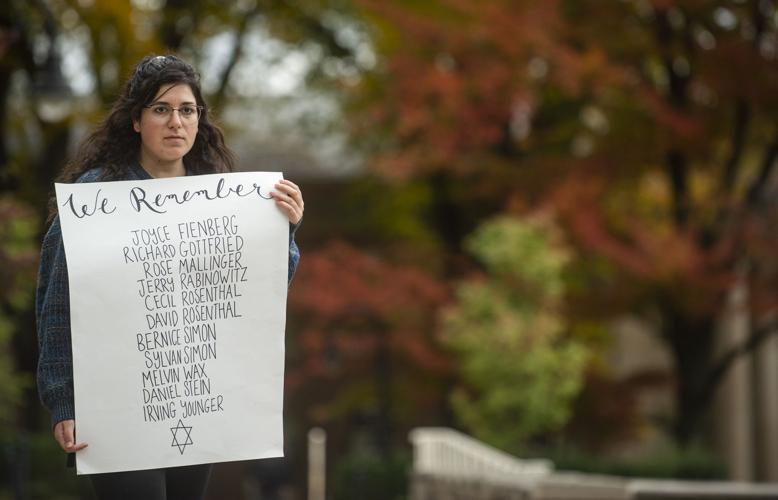 We Remember
JOYCE FIENBERG
RICHARD GOTTFRIED
ROSE MALLINGER
JERRY RABINOWITZ
CECIL ROSENTHAL
DAVID ROSENTHAL
BERNICE SIMON
SYLVAN SIMON
MELVIN WAX
DANIEL STEIN
IRVING YOUNGER